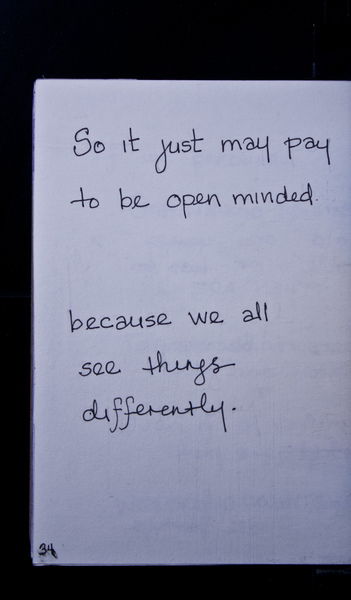 So it just may pay
to be open minded.
because we all
see things
differently.
34